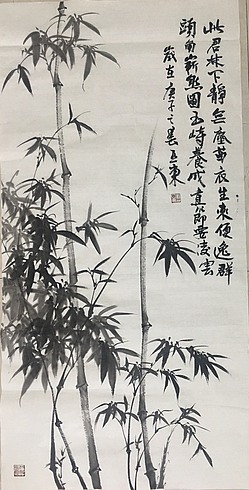 此君林下靜無塵苗衣生來便逸群
頭角嶄然圓玉峙養成直節要凌雲
歲在庚子之